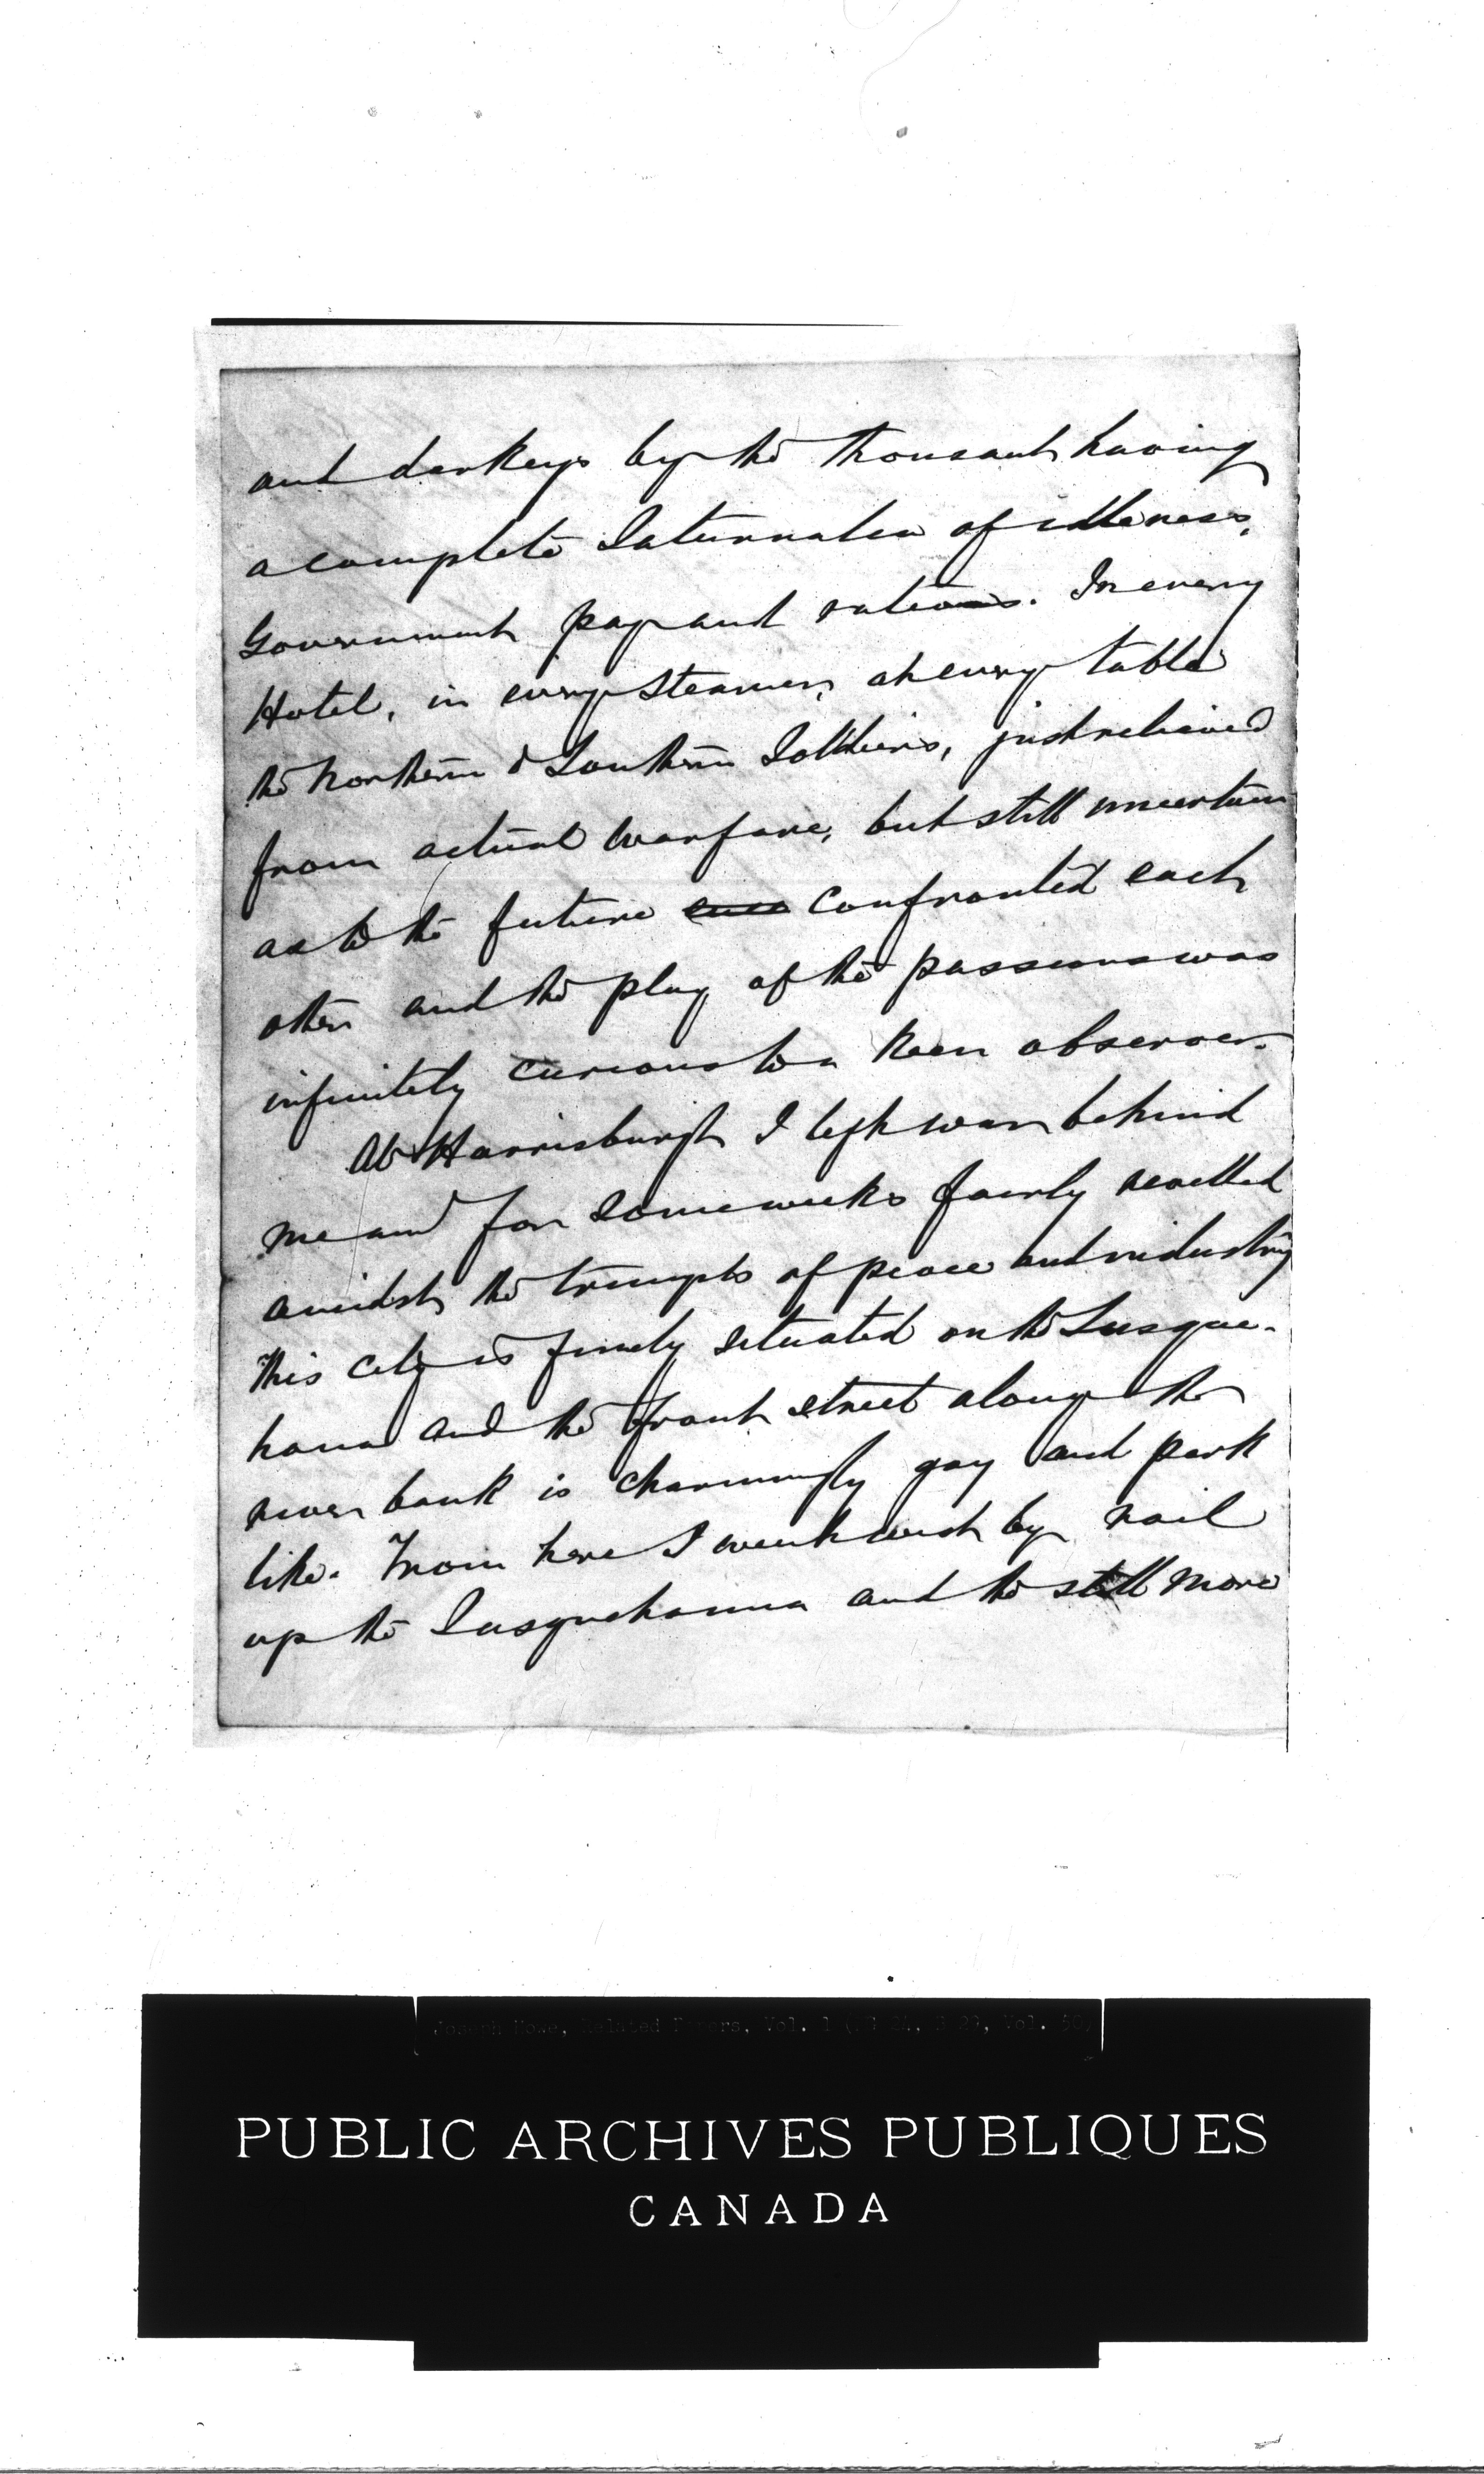 and darkeys by the thousand having
a complete Saturnalia of idleness,
Government pay and rations. In every
Hotel, in every Steamer, at every table
the Northern & Southern Soldiers, just relieved
from actual warfare, but still uncertain
as to the future confronted each
other and the play of the passions was
infinitely curious to a keen observer.
At Harrisburgh I left war behind
me and for some weeks fairly revelled
amidst the triumphs of peace and industry
This City is finely situated on the Susque-
hanna and the front street along the
river bank is charmingly gay and park
like. From here I went west by rail
up the Susquehanna and the still more
Joseph Howe, Related Papers, Vol. 1 (MG 24, B 29, Vol. 50)
PUBLIC ARCHIVES PUBLIQUES
CANADA